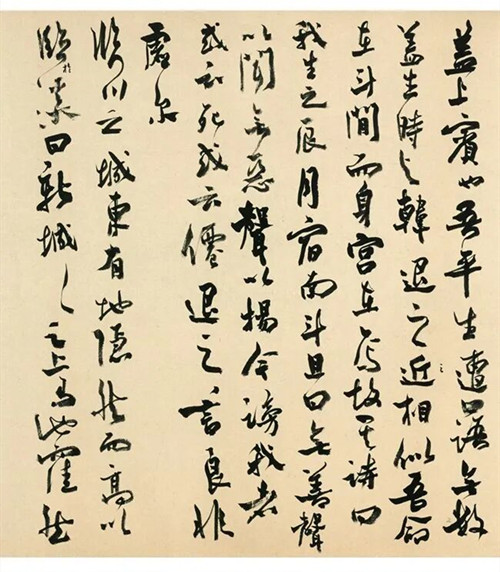 蓋上賓也吾平生遭口語無數
蓋生時与韓退之近相似吾命
在斗間而身宮在焉故其詩曰
我生之辰月宿南斗且曰無善聲
以聞無惡聲以揚今謗我者
或云死或云僊退之々言良非
虛尔
臨川之城東有地隱然而高以
臨於溪曰新城々之上有池窪然